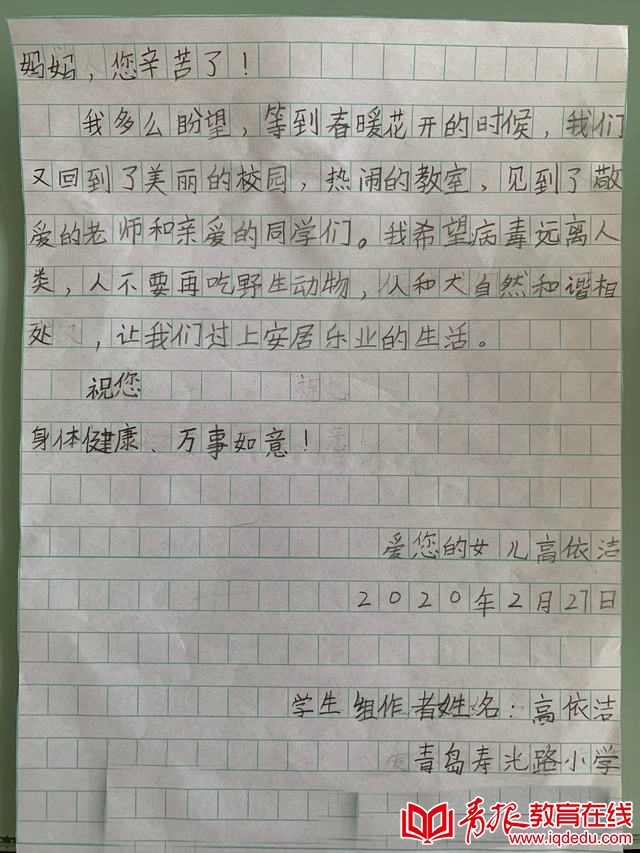 妈妈，您辛苦了！
我多么盼望，等到春暖花开的时候，我们
又回到了美丽的校园，热闹的教室，见到了敬
爱的老师和亲爱的同学们。我希望病毒远离人
类，人不要再吃野生动物，从和犬自然和谐相
处，让我们过上安居乐业的生活。
祝您
身体健康、万事如意！
爱您的女儿高依洁
2020年2月27日
学生组作者姓名：高依洁
青岛寿光路小学
青报教育在线
www.iqdedu.com